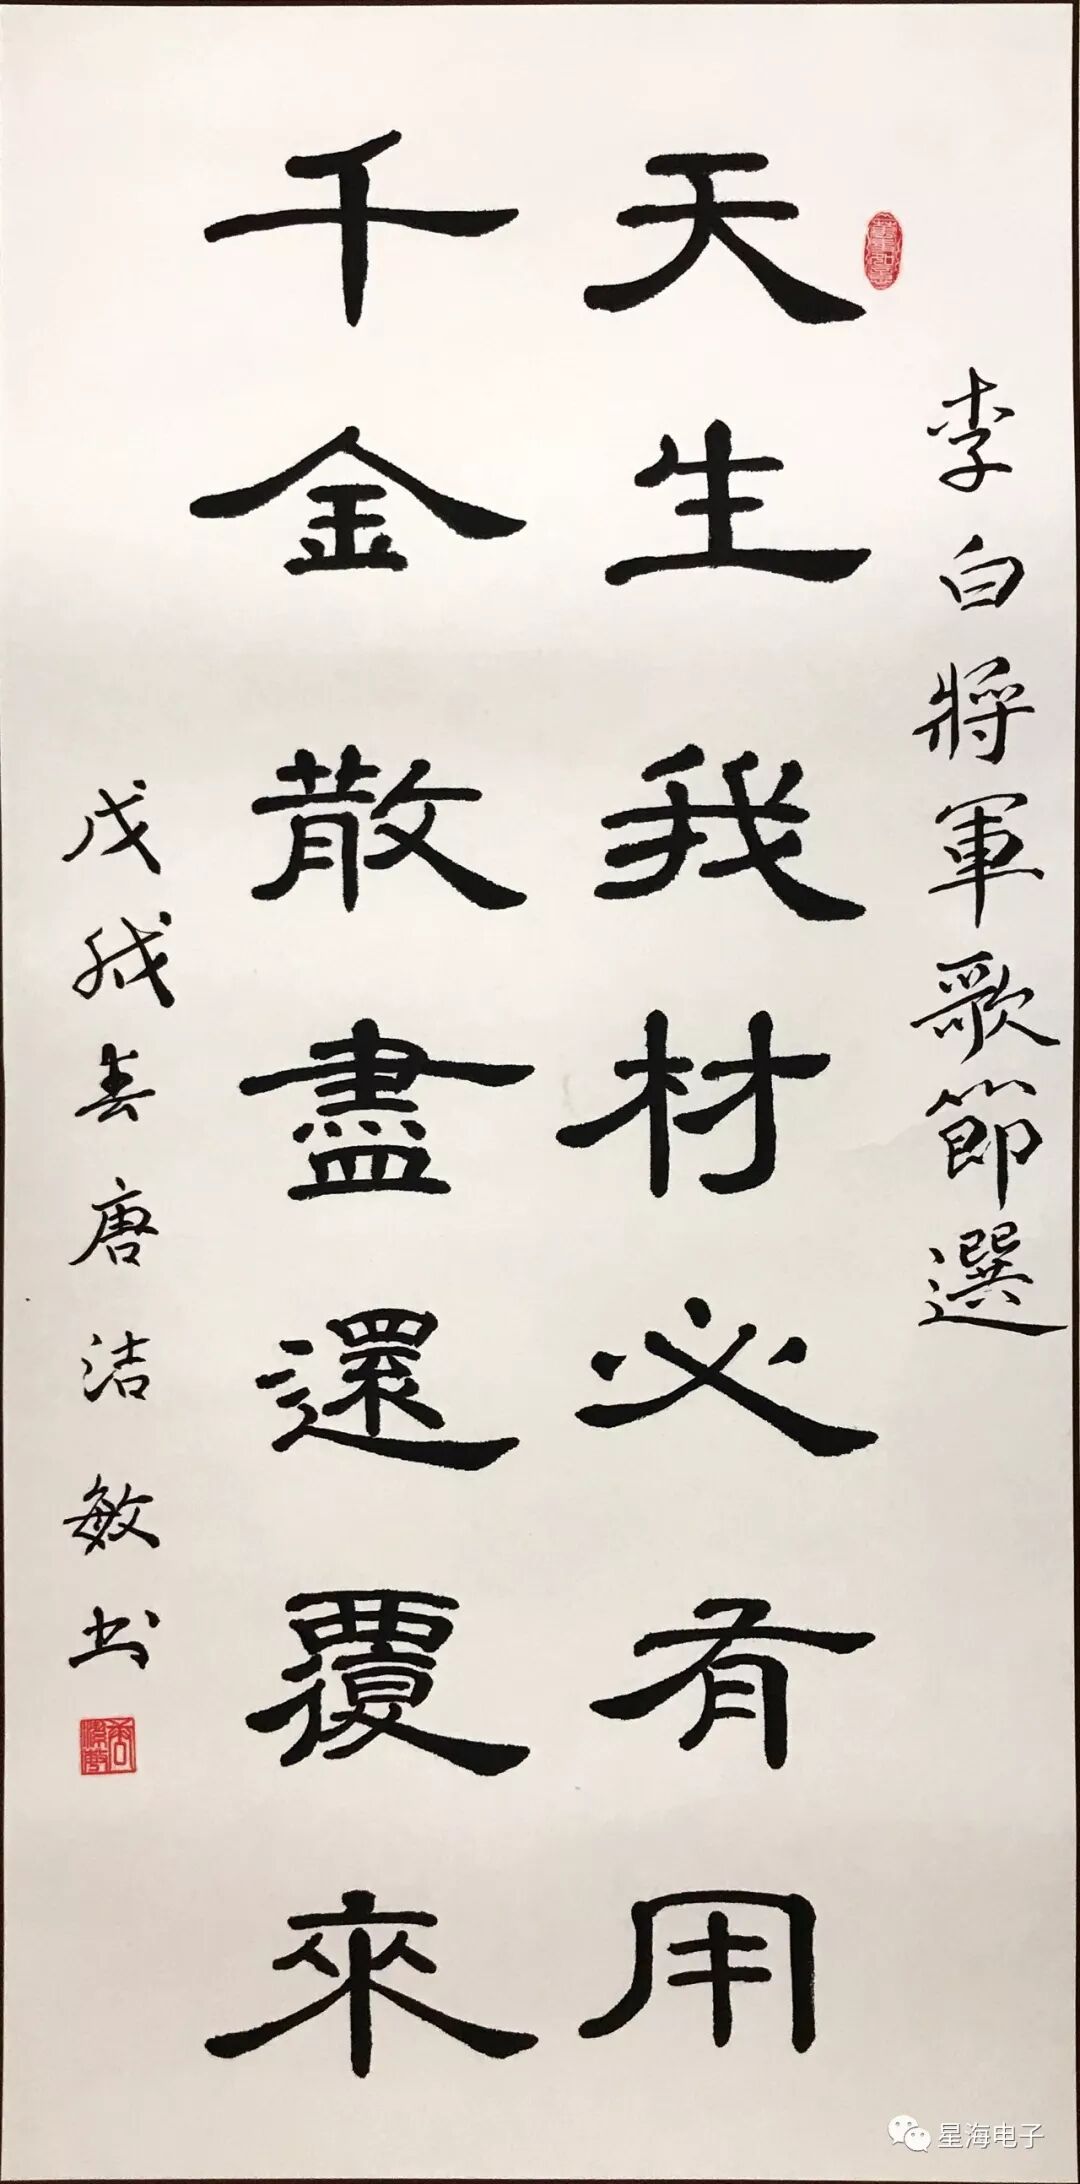 李白將軍歌節選
天生我材必有用
千金散盡還覆來
戊戌春唐洁敏书
星海电子